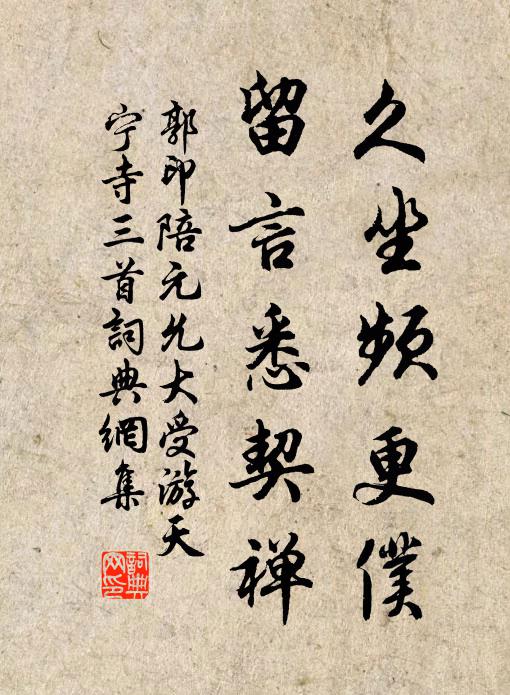 久坐频更僕
留言悉契禅
郭印陪元允大受游天
宁寺三首詞典網集
詞典
网印